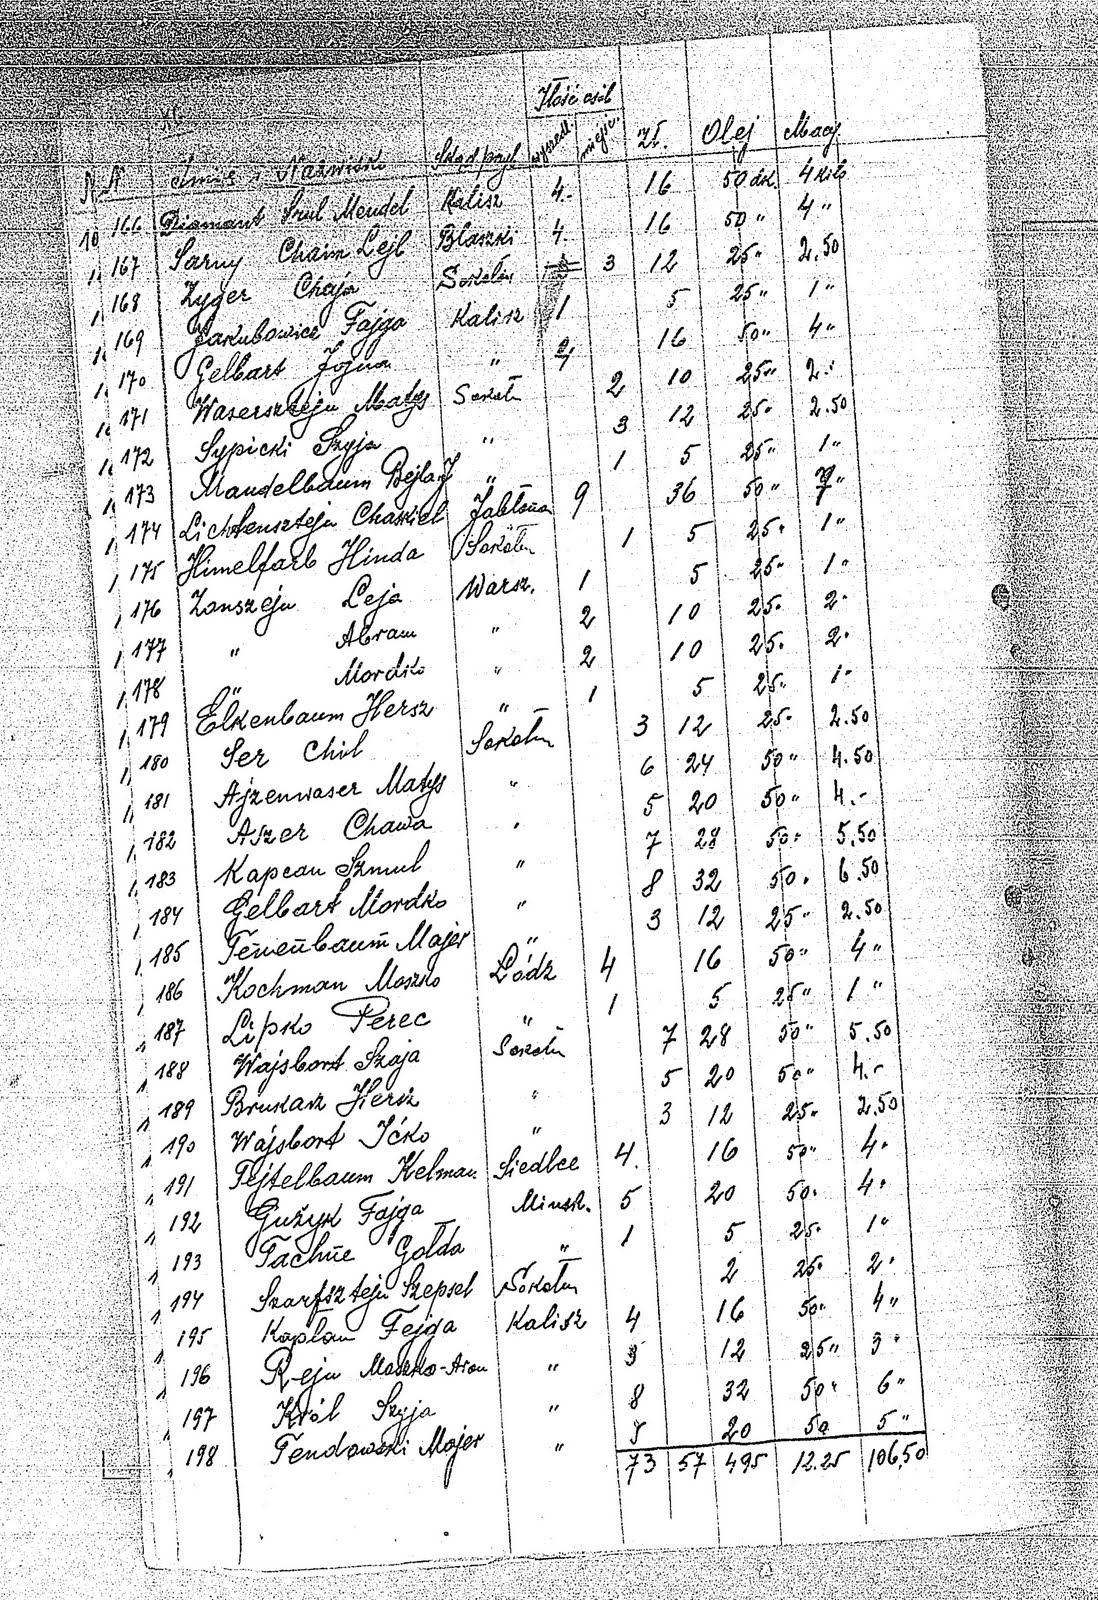 Ilość osób
N. N Imię i Nazwisko Skąd przyb. wysiedl. miejsc. Zł. Olej Mąq.
166 Diamant Srul Mendel Kalisz 4.- 16 50 dk. 4 kilo
167 Sarny Chaim Lejb Błaszki 4. 16 50 " 4 "
168 Zyger Chaja Sokołów 3 12 25 " 2.50
169 Jakubowicz Fajga Kalisz 1 5 25 " 1 "
170 Gelbart Jojna " 4 16 50 " 4 "
171 Wasersztejn Matys Sokołów 2 10 25 " 2.
172 Sypicki Szyja " 3 12 25 " 2.50
173 Mandelbaum Bejla J " 1 5 25 " 1 "
174 Lichtensztejn Chaskiel Jabłonna 9 36 50 " 9 "
175 Himelfarb Hinda Sokołów 1 5 25 " 1 "
176 Zonszejn Leja Warsz. 1 5 25 " 1 "
177 " Abram " 2 10 25 " 2 "
178 " Mordko " 2 10 25 " 2 "
179 Elkenbaum Hersz " 1 5 25 " 1 "
180 Ser Chil Sokołów 3 12 25 " 2.50
181 Ajzenwaser Matys " 6 24 50 " 4.50
182 Aszer Chawa " 5 20 50 " 4.-
183 Kapcan Szmul " 7 28 50 " 5.50
184 Gelbart Mordko " 8 32 50 " 6.50
185 Tenenbaum Majer " 3 12 25 " 2.50
186 Kochman Moszko Łódz 4 16 50 " 4 "
187 Lipko Perec " 1 5 25 " 1 "
188 Wajsbort Szaja Sokołów 7 28 50 " 5.50
189 Brukarz Hersz " 5 20 50 " 4.-
190 Wajsbort Icko " 3 12 25 " 2.50
191 Tejtelbaum Kelman Siedlce 4. 16 50 " 4 "
192 Gużyk Fajga Minsk. 5 20 50 " 4 "
193 Tachne Golda " 1 5 25 " 1 "
194 Szarfsztejn Szepsel Sokołów 2 25 " 2 "
195 Kaplan Fejga Kalisz 4 16 50 " 4 "
196 Rejn Moszko-Aron " 3 12 25 " 3 "
197 Król Szyja " 8 32 50 " 6 "
198 Tendowski Majer " 5 20 50 5 "
73 57 495 12.25 106,50